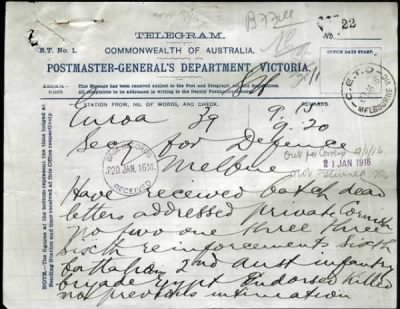 B Bell
TELEGRAM.
No. 22
B.T. No. 1.
COMMONWEALTH OF AUSTRALIA.
OFFICE DATE STAMP.
POSTMASTER-GENERAL'S DEPARTMENT, VICTORIA.
This Message has been received subject to the Post and Telegraph Act and Regulations.
All complaints to be addressed in writing to the Deputy Postmaster-General.
STATION FROM, NO. OF WORDS, AND CHECK.
REMARKS.
MELBOURNE
Euroa 39 9. 9.20
Sec for Defence
Melbne
20 JAN. 1916
RECEIVED
21 JAN 1916
Have received batch dead
letters addressed private Cornish
no two one three three
sixth reinforcements sixth
battalion 2nd aust infantry
brigade egypt Endorsed killed
no previous intimation
NOTE.—The figures at the bottom represent the time lodged at Sending Station and time of Receipt at this Office respectively.